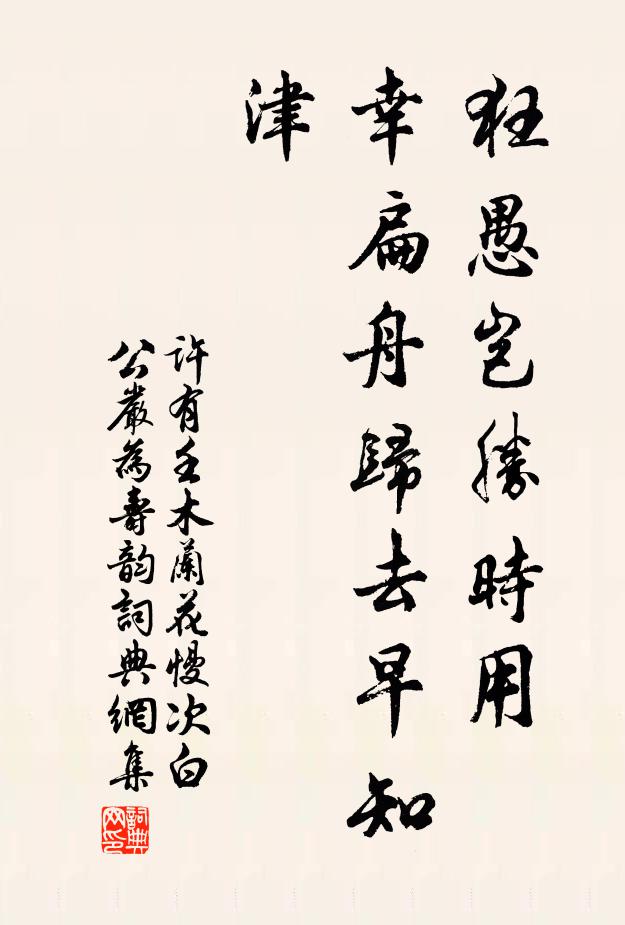 狂愚豈勝時用
幸扁舟歸去早知
津
許有壬木蘭花慢次白
公嚴為壽韵詞典網集
詞典
网印